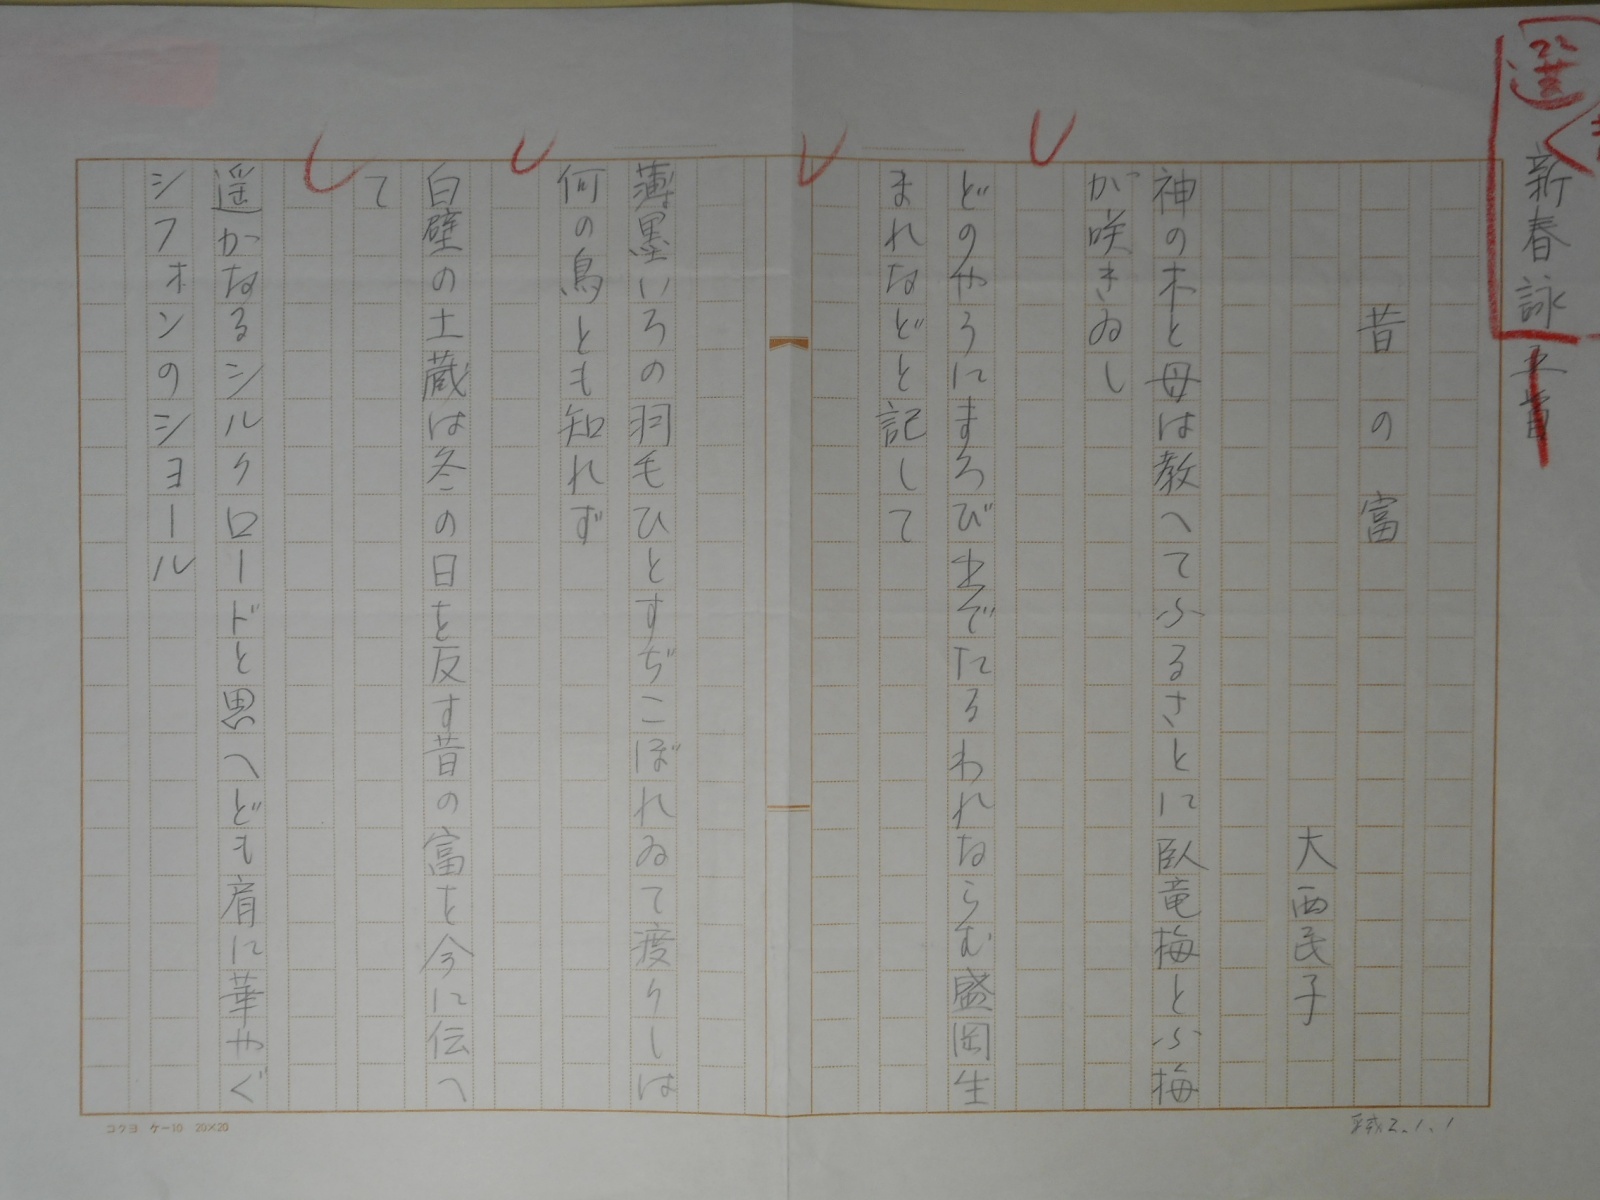 新春詠
昔の富
大西民子
神の木と母は教へてふるさとに臥竜梅とふ梅
が咲きゐし
どのやうにまろび出でたるわれならむ盛岡生
まれなどと記して
薄墨いろの羽毛ひとすぢこぼれゐて渡りしは
何の鳥とも知れず
白壁の土蔵は冬の日を反す昔の富を今に伝へ
て
遥かなるシルクロードと思へども肩に華やぐ
シフォンのショール
コクヨ ケー10 20×20